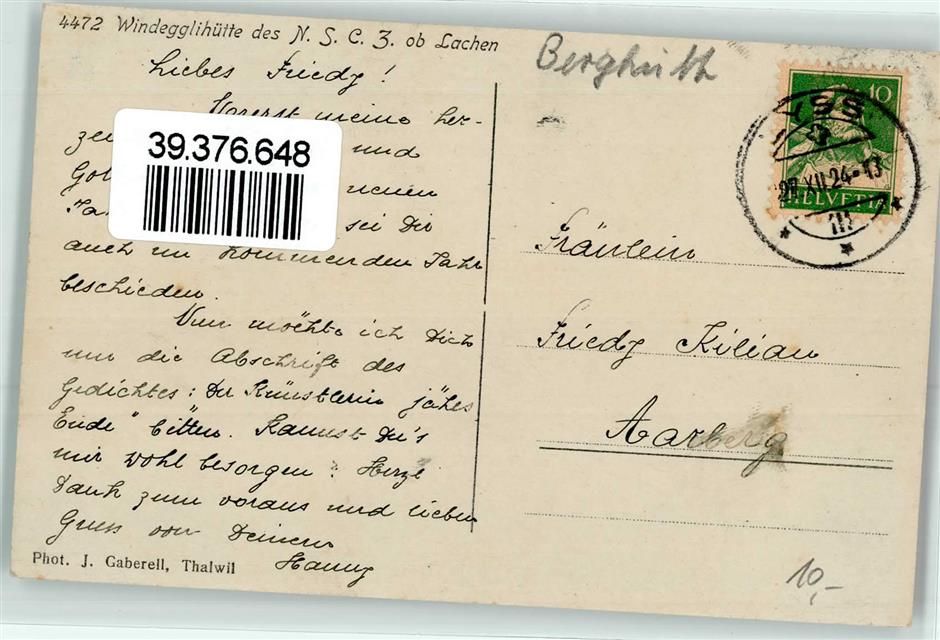 4472 Windegglihütte des N. S. C. Z. ob Lachen
Liebes Friedy!
Vorerst meine her-
und
neuen
sei Dir
auch im kommenden Jahr
beschieden.
Nun möchte ich Dich
um die Abschrift des
Gedichtes: Der Künstlerin jähes
Ende" bitten. Kannst Du's
mir wohl besorgen? Herzl
Dank zum voraus und lieben
Gruss von Deinem
Hanny
Phot. J. Gaberell, Thalwil
39.376.648
Berghütth
10
LYSS
27.XII.24-13
HELVETIA
Fräulein
Friedy Kilian
Aarberg
10,-